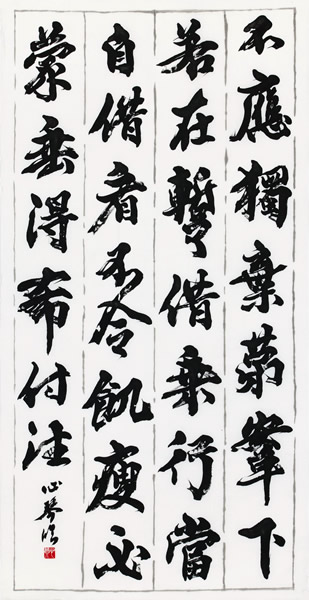 不應獨棄第輦下
若在蹔借乘行當
自借者不令飢瘦必
蒙垂得希付往
心琴